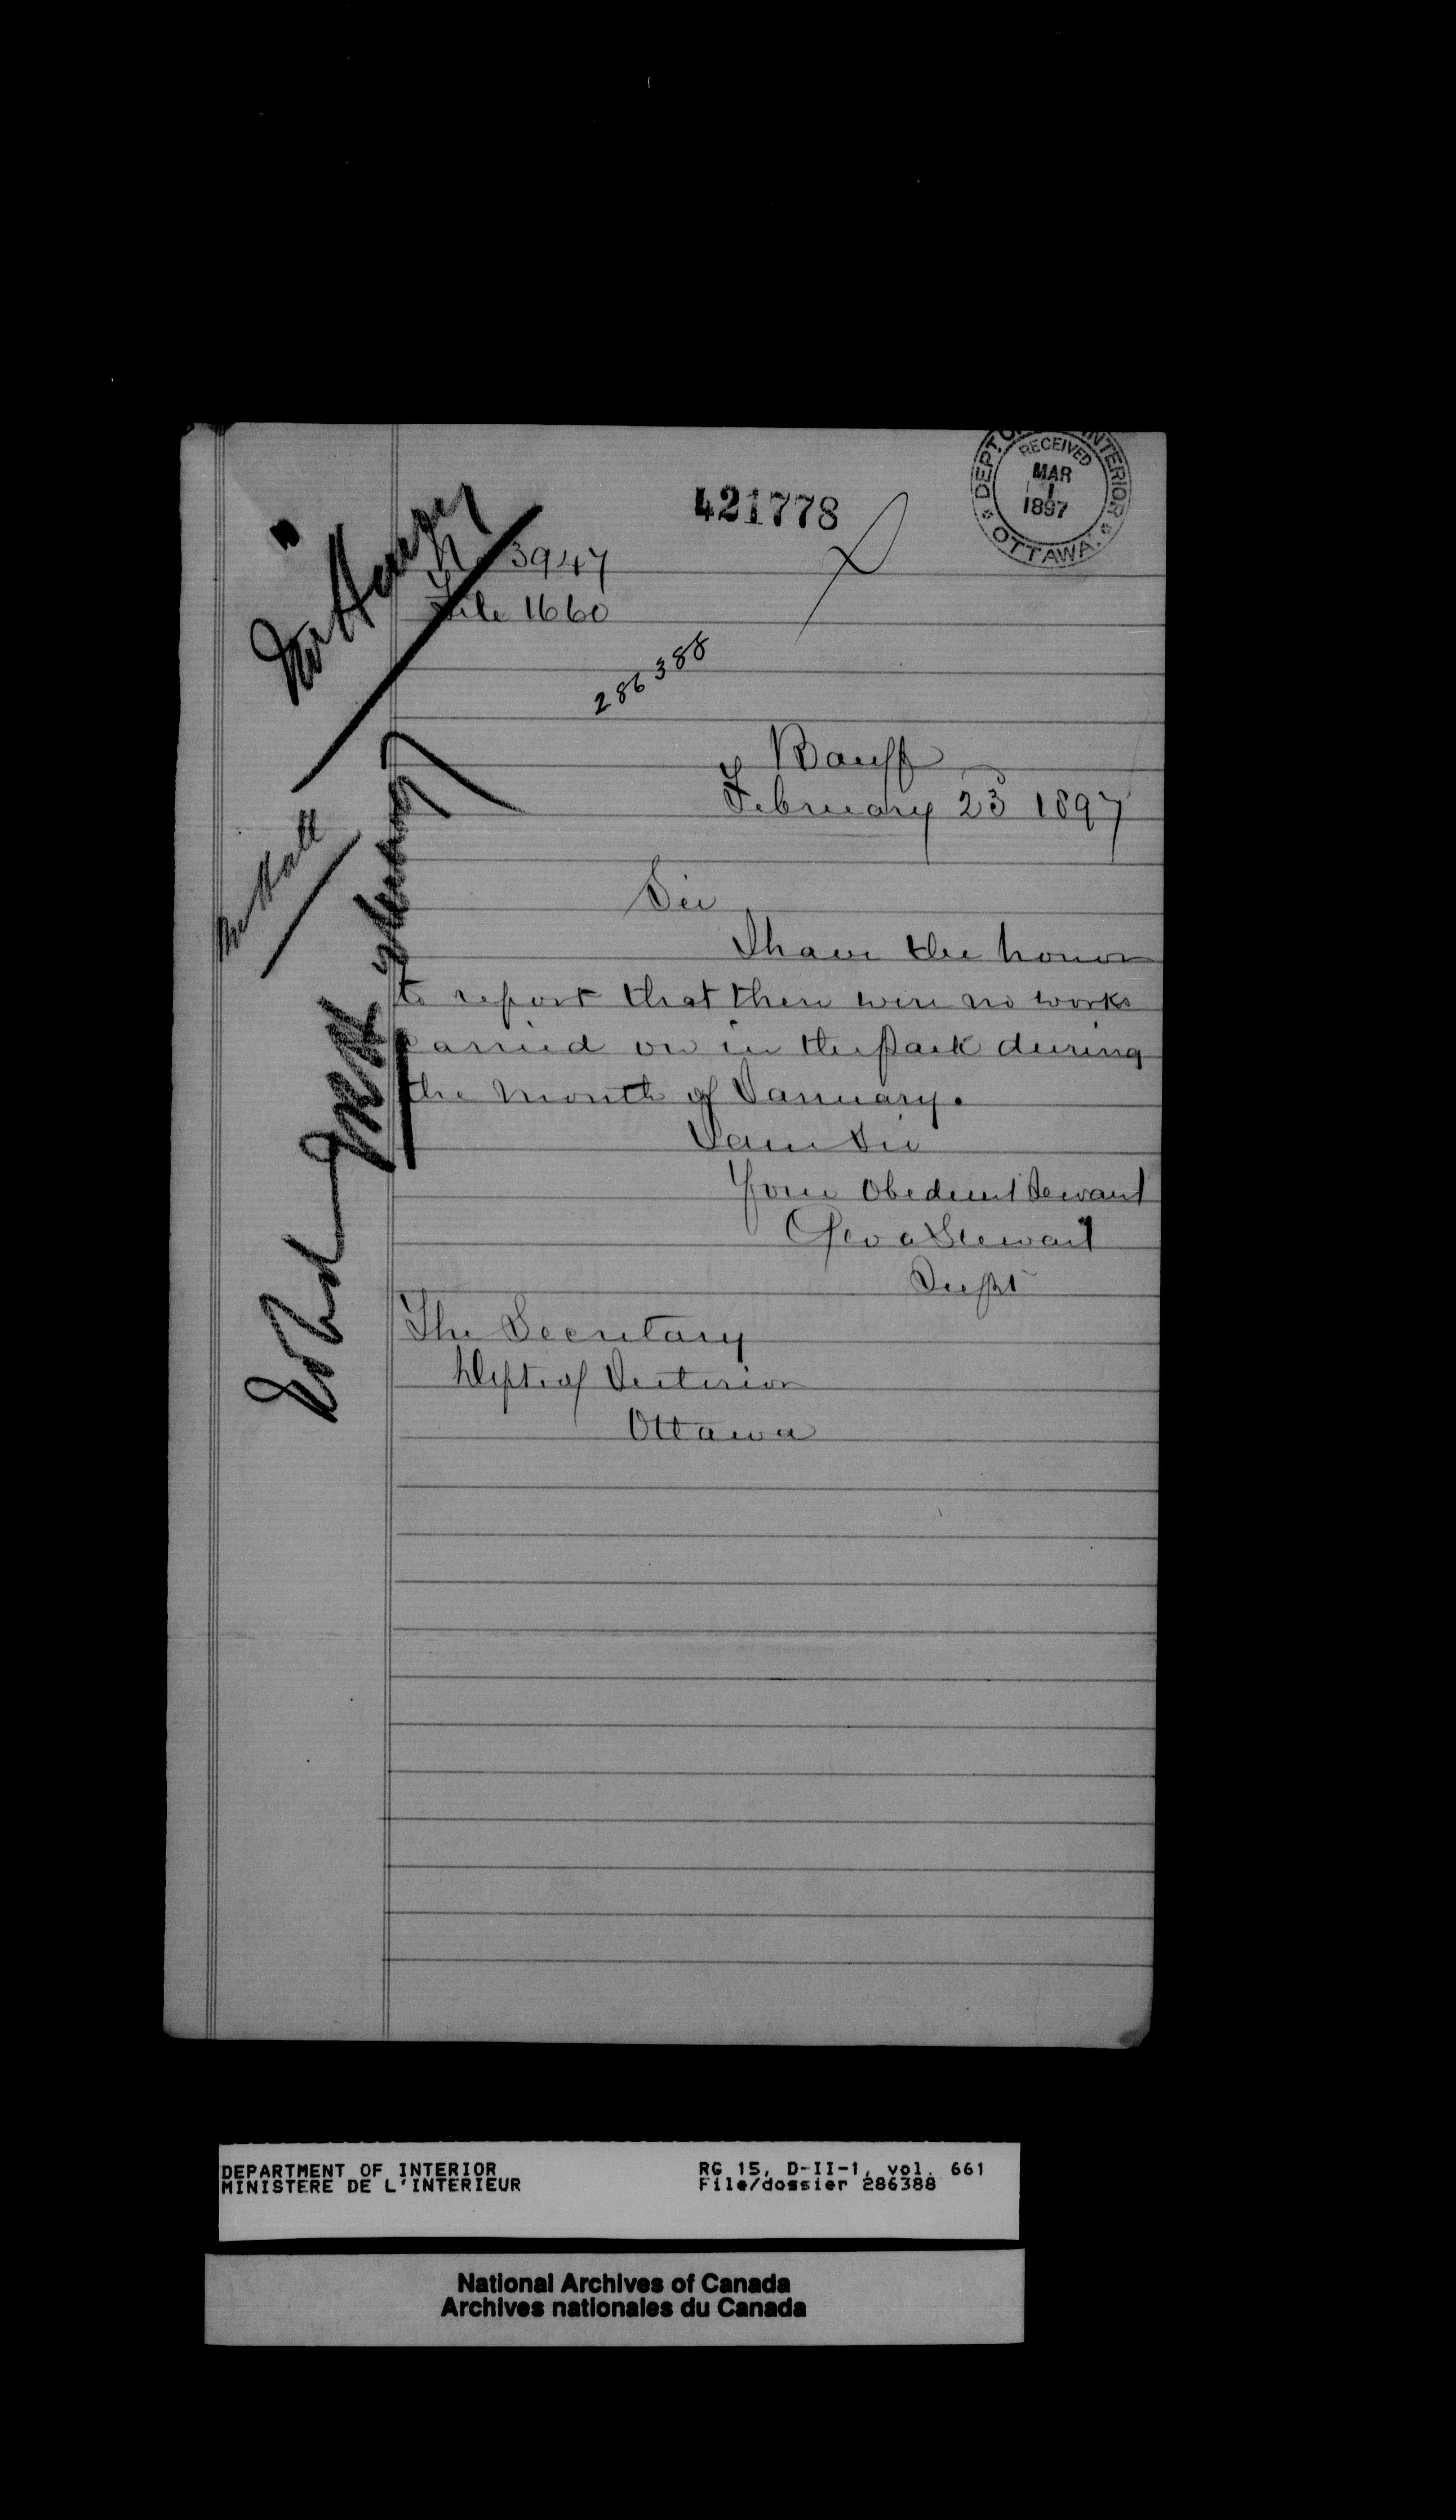 DEPT. OF INTERIOR
RECEIVED
MAR
1
1897
OTTAWA.
421778
No 3947
File 1660
286388
Banff
February 23d 1897
Sir
I have the honor
to report that there were no works
carried on in the Park during
the month of January.
I am Sir
Your Obedient Servant
Geo a Stewart
Supt
The Secretary
Dept of Interior
Ottawa
Mr Hall
DEPARTMENT OF INTERIOR
MINISTERE DE L'INTERIEUR
RG 15, D-II-1, vol. 661
File/dossier 286388
National Archives of Canada
Archives nationales du Canada